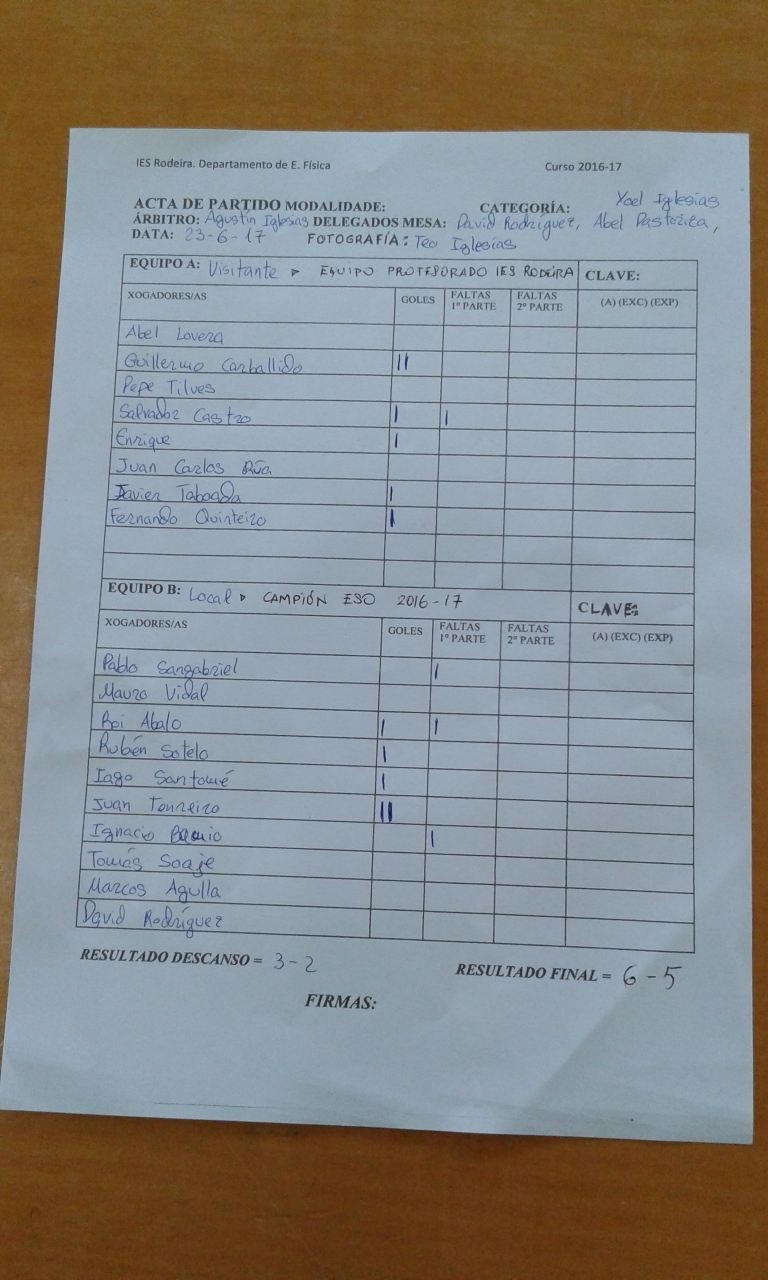 IES Rodeira. Departamento de E. Física Curso 2016-17
ACTA DE PARTIDO MODALIDADE: CATEGORÍA: Yoel Iglesias
ÁRBITRO: Agustín Iglesias DELEGADOS MESA: David Rodríguez, Abel Pastoriza,
DATA: 23-6-17 FOTOGRAFÍA: Teo Iglesias
EQUIPO A: Visitante EQUIPO PROFESORADO IES RODEIRA CLAVE:
XOGADORES/AS GOLES FALTAS 1ª PARTE FALTAS 2ª PARTE (A) (EXC) (EXP)
Abel Lovera
Guillermo Carballido II
Pepe Tilves
Salvador Castro I I
Enrique I
Juan Carlos Rúa
Javier Taboada I
Fernando Quinteiro I
EQUIPO B: Local CAMPIÓN ESO 2016-17 CLAVE:
XOGADORES/AS GOLES FALTAS 1ª PARTE FALTAS 2ª PARTE (A) (EXC) (EXP)
Pablo Sangabriel I
Mauro Vidal
Roi Abalo I I
Rubén Sotelo I
Iago Santomé I
Juan Tenreiro II
Ignacio I
Tomás Soaje
Marcos Agulla
David Rodríguez
RESULTADO DESCANSO = 3-2 RESULTADO FINAL = 6-5
FIRMAS: